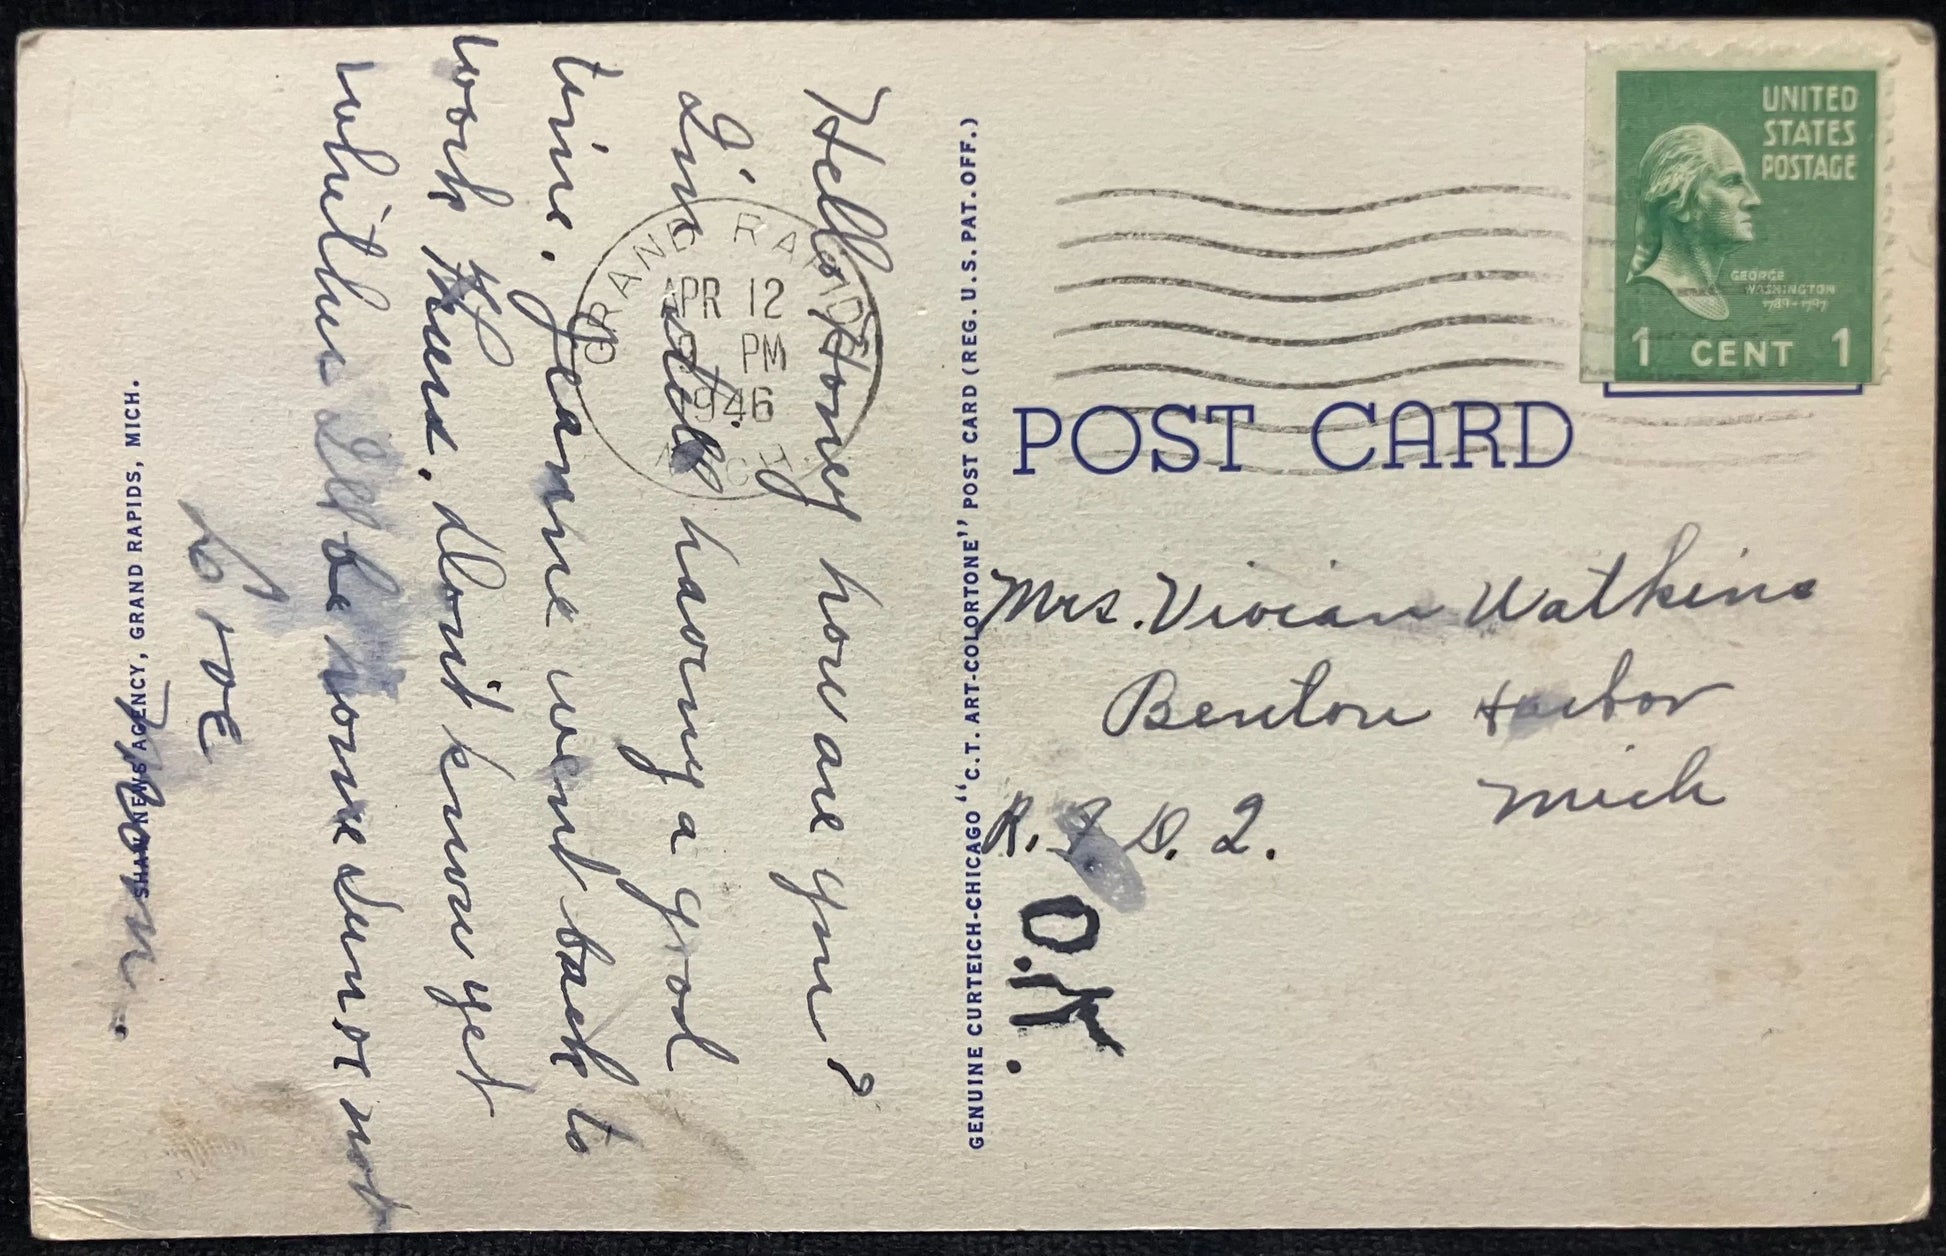 Hello Honey how are you?
I'm still having a good
time. Jeannie went back to
work Thurs. Don't know yet
whither I'll be home Sun or not
Love
Mom.
SHAW NEWS AGENCY, GRAND RAPIDS, MICH.
GENUINE CURTEICH-CHICAGO "C.T. ART-COLORTONE" POST CARD (REG. U.S. PAT. OFF.)
GRAND RAPIDS
APR 12
PM
1946
MICH.
UNITED
STATES
POSTAGE
GEORGE
WASHINGTON
1789-1797
1 CENT 1
POST CARD
Mrs. Vivian Watkins
Benton Harbor
Mich
R.F.D. 2.
O.K.